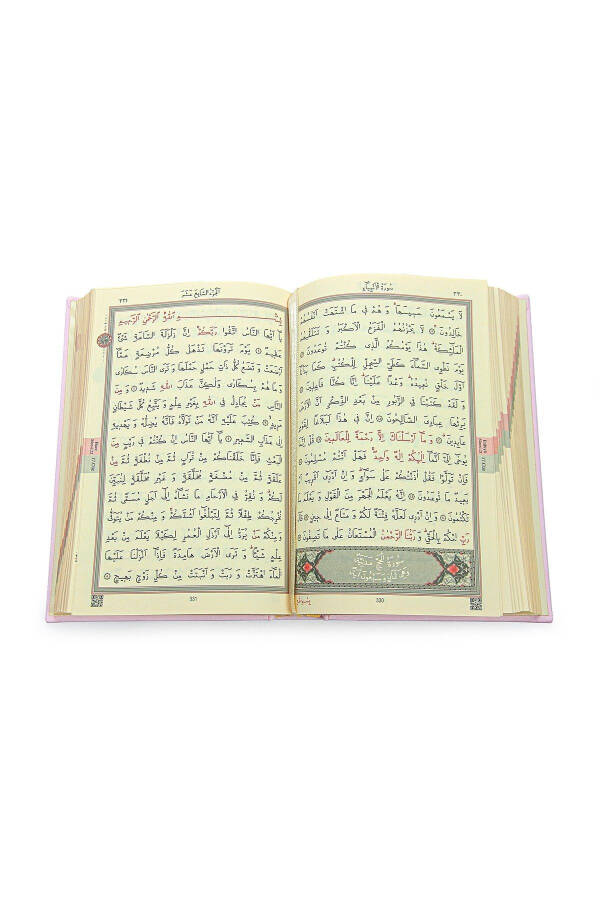 سورة الانبياء ٣٣٠
لَا يَسْمَعُونَ حَسِيسَهَا وَهُمْ فِي مَا اشْتَهَتْ اَنْفُسُهُمْ
خَالِدُونَ ۝ لَا يَحْزُنُهُمُ الْفَزَعُ الْاَكْبَرُ وَتَتَلَقّٰيهُمُ
الْمَلٰٓئِكَةُ هٰذَا يَوْمُكُمُ الَّذِي كُنْتُمْ تُوعَدُونَ ۝
يَوْمَ نَطْوِي السَّمَٓاءَ كَطَيِّ السِّجِلِّ لِلْكُتُبِ كَمَا بَدَأْنَٓا
اَوَّلَ خَلْقٍ نُعِيدُهُ وَعْدًا عَلَيْنَا اِنَّا كُنَّا فَاعِلِينَ ۝
وَلَقَدْ كَتَبْنَا فِي الزَّبُورِ مِنْ بَعْدِ الذِّكْرِ اَنَّ الْاَرْضَ
يَرِثُهَا عِبَادِيَ الصَّالِحُونَ ۝ اِنَّ فِي هٰذَا لَبَلَاغًا لِقَوْمٍ
عَابِدِينَ ۝ وَمَٓا اَرْسَلْنَاكَ اِلَّا رَحْمَةً لِلْعَالَمِينَ ۝ قُلْ اِنَّمَا
يُوحٰٓى اِلَيَّ اَنَّمَٓا اِلٰهُكُمْ اِلٰهٌ وَاحِدٌ فَهَلْ اَنْتُمْ مُسْلِمُونَ ۝
فَاِنْ تَوَلَّوْا فَقُلْ اٰذَنْتُكُمْ عَلٰى سَوَٓاءٍ وَاِنْ اَدْرِٓي اَقَرِيبٌ اَمْ
بَعِيدٌ مَا تُوعَدُونَ ۝ اِنَّهُ يَعْلَمُ الْجَهْرَ مِنَ الْقَوْلِ وَيَعْلَمُ مَا
تَكْتُمُونَ ۝ وَاِنْ اَدْرِي لَعَلَّهُ فِتْنَةٌ لَكُمْ وَمَتَاعٌ اِلٰى حِينٍ ۝ قَالَ
رَبِّ احْكُمْ بِالْحَقِّ وَرَبُّنَا الرَّحْمٰنُ الْمُسْتَعَانُ عَلٰى مَا تَصِفُونَ ۝
سورة الحج
330
الجزء السابع عشر ٣٣١
بِسْمِ اللّٰهِ الرَّحْمٰنِ الرَّحِيمِ
يَٓا اَيُّهَا النَّاسُ اتَّقُوا رَبَّكُمْ اِنَّ زَلْزَلَةَ السَّاعَةِ شَيْءٌ
عَظِيمٌ ۝ يَوْمَ تَرَوْنَهَا تَذْهَلُ كُلُّ مُرْضِعَةٍ عَمَّٓا
اَرْضَعَتْ وَتَضَعُ كُلُّ ذَاتِ حَمْلٍ حَمْلَهَا وَتَرَى النَّاسَ سُكَارٰى
وَمَا هُمْ بِسُكَارٰى وَلٰكِنَّ عَذَابَ اللّٰهِ شَدِيدٌ ۝ وَمِنَ
النَّاسِ مَنْ يُجَادِلُ فِي اللّٰهِ بِغَيْرِ عِلْمٍ وَيَتَّبِعُ كُلَّ شَيْطَانٍ
مَرِيدٍ ۝ كُتِبَ عَلَيْهِ اَنَّهُ مَنْ تَوَلَّاهُ فَاَنَّهُ يُضِلُّهُ وَيَهْدِيهِ
اِلٰى عَذَابِ السَّعِيرِ ۝ يَٓا اَيُّهَا النَّاسُ اِنْ كُنْتُمْ فِي رَيْبٍ مِنَ
الْبَعْثِ فَاِنَّا خَلَقْنَاكُمْ مِنْ تُرَابٍ ثُمَّ مِنْ نُطْفَةٍ ثُمَّ مِنْ
عَلَقَةٍ ثُمَّ مِنْ مُضْغَةٍ مُخَلَّقَةٍ وَغَيْرِ مُخَلَّقَةٍ لِنُبَيِّنَ
لَكُمْ وَنُقِرُّ فِي الْاَرْحَامِ مَا نَشَٓاءُ اِلٰٓى اَجَلٍ مُسَمًّى ثُمَّ
نُخْرِجُكُمْ طِفْلًا ثُمَّ لِتَبْلُغُٓوا اَشُدَّكُمْ وَمِنْكُمْ مَنْ يُتَوَفّٰى
وَمِنْكُمْ مَنْ يُرَدُّ اِلٰٓى اَرْذَلِ الْعُمُرِ لِكَيْلَا يَعْلَمَ مِنْ بَعْدِ
عِلْمٍ شَيْـًٔا وَتَرَى الْاَرْضَ هَامِدَةً فَاِذَٓا اَنْزَلْنَا عَلَيْهَا
الْمَٓاءَ اهْتَزَّتْ وَرَبَتْ وَاَنْبَتَتْ مِنْ كُلِّ زَوْجٍ بَهِيجٍ ۝
331